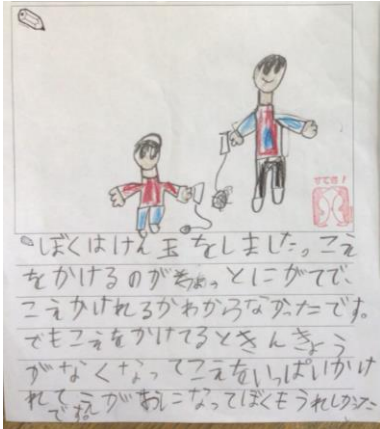 すてき!
ぼくはけん玉をしました。こえ
をかけるのがちょっとにがてで、
こえかけれるかわからなかったです。
でもこえをかけてるときんきょう
がなくなってこえをいっぱいかけ
れてえがおになってぼくもうれしかった
です。